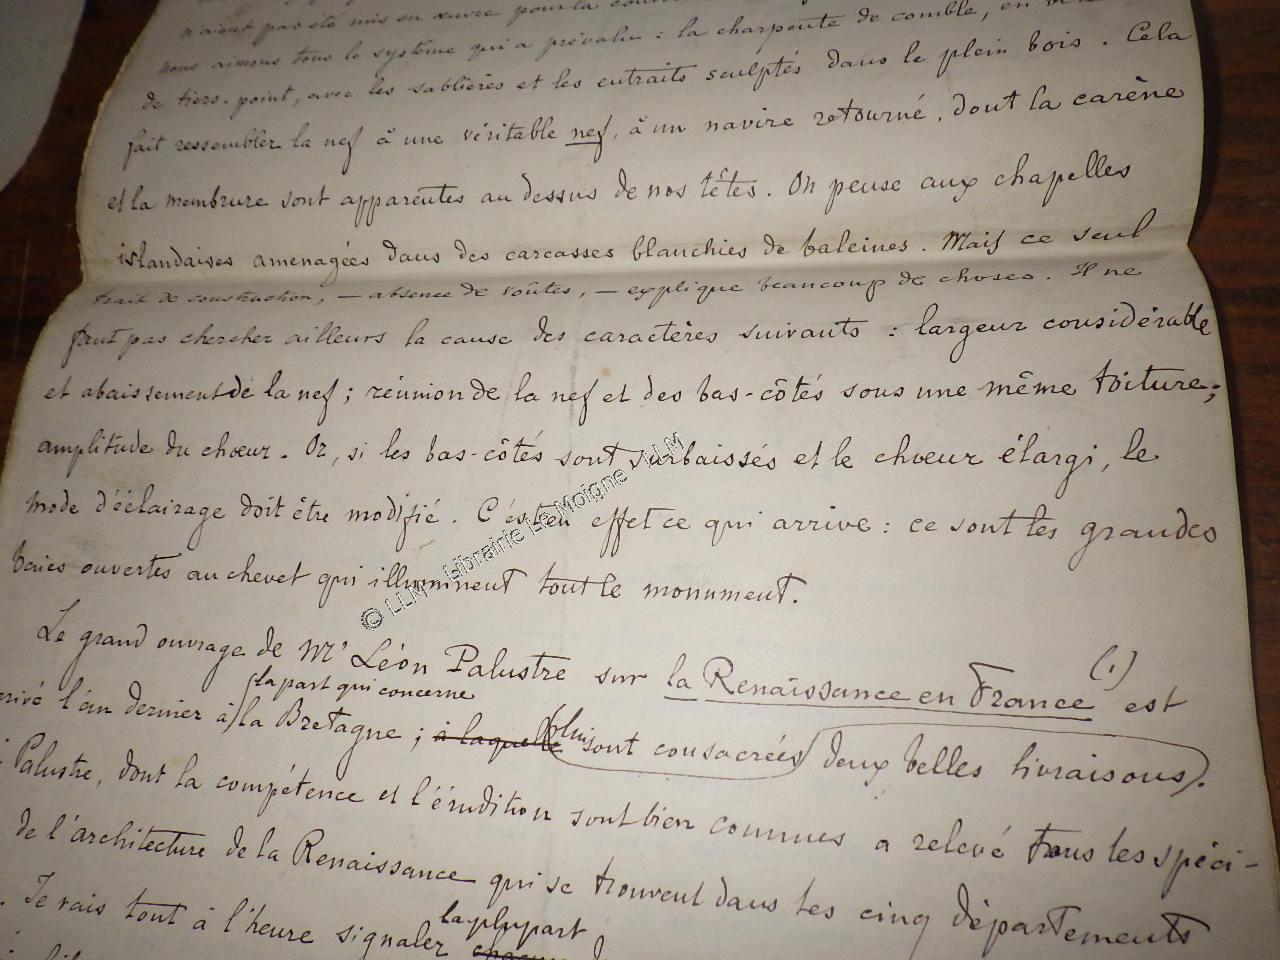 n'aient pas été mis en œuvre pour la
nous aimons tous le système qui a prévalu : la charpente de comble, en
de tiers-point, avec les sablières et les entraits sculptés dans le plein bois. Cela
fait ressembler la nef à une véritable nef, à un navire retourné, dont la carène
et la membrure sont apparentes au dessus de nos têtes. On pense aux chapelles
islandaises aménagées dans des carcasses blanchies de baleines. Mais ce seul
trait de construction, — absence de voûtes, — explique beaucoup de choses. Il ne
faut pas chercher ailleurs la cause des caractères suivants : largeur considérable
et abaissement de la nef ; réunion de la nef et des bas-côtés sous une même toiture ;
amplitude du chœur. Or, si les bas-côtés sont surbaissés et le chœur élargi, le
mode d'éclairage doit être modifié. C'est en effet ce qui arrive : ce sont les grandes
baies ouvertes au chevet qui illuminent tout le monument.
Le grand ouvrage de Mr Léon Palustre sur la Renaissance en France (1) est
la part qui concerne
rivé l'an dernier à la Bretagne ; à laquelle lui sont consacrées deux belles livraisons.
Palustre, dont la compétence et l'érudition sont bien connues a relevé tous les spéci-
de l'architecture de la Renaissance qui se trouvent dans les cinq départements
la plupart
. Je vais tout à l'heure signaler
© LLM - Librairie Le Moigne - LLM